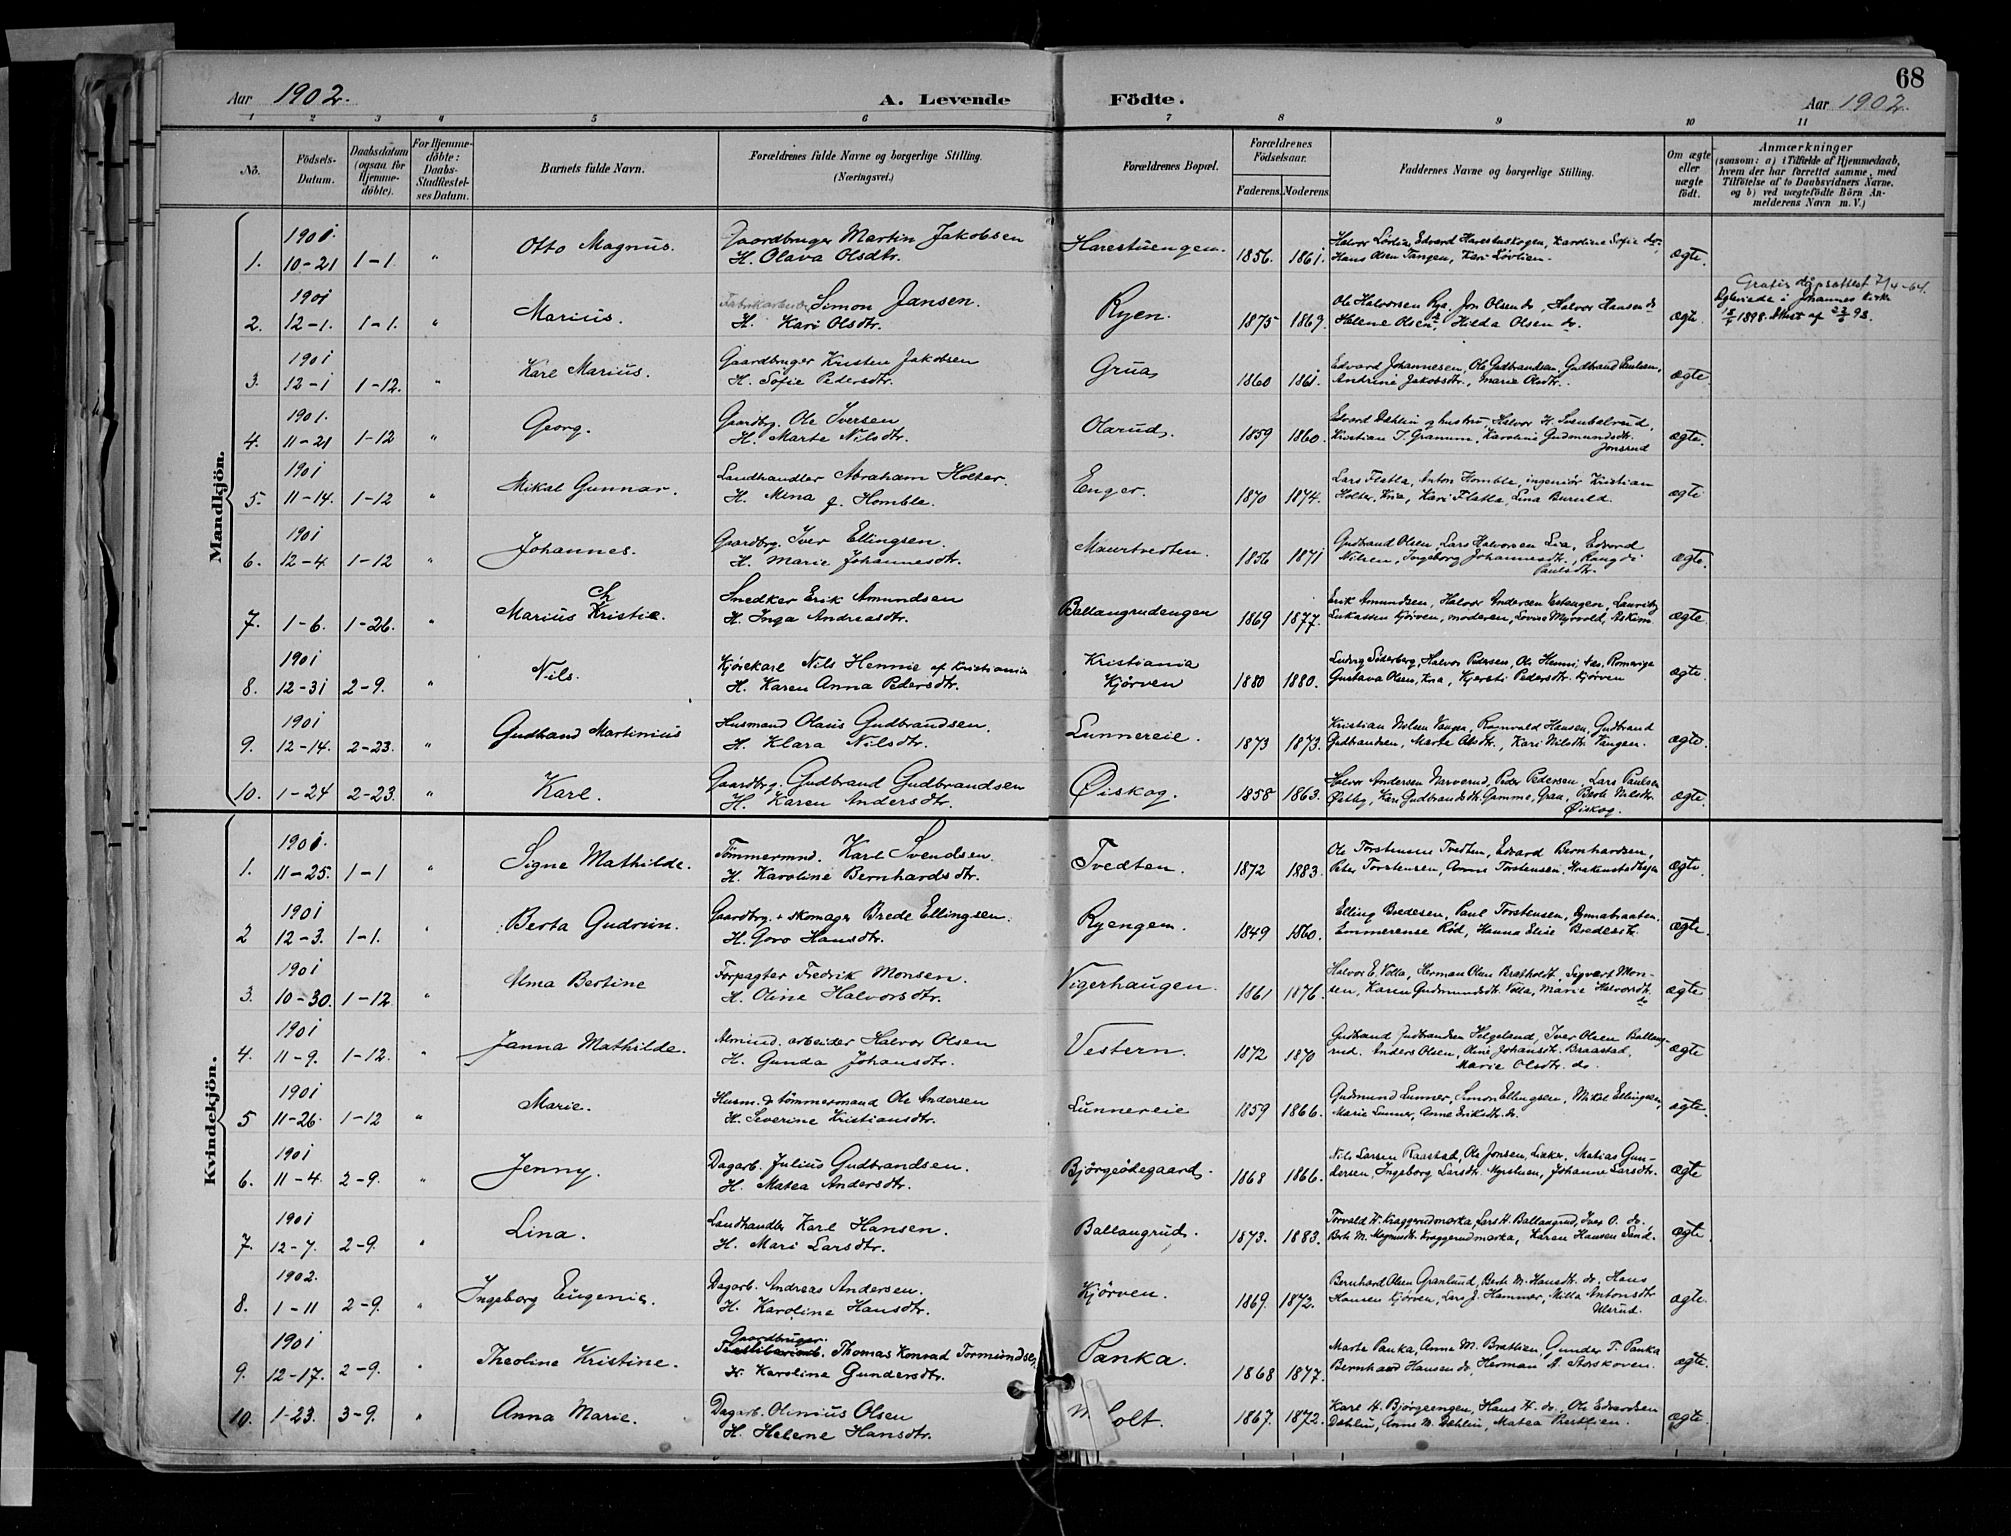 68
Aar 1902. A. Levende Födte. Aar 1902.
1 2 3 4 5 6 7 8 9 10 11
No. Födsels-Datum. Daabsdatum (ogsaa for Hjemme-döbte). For Hjemme-döbte: Daabs-Stadfæstel-ses Datum. Barnets fulde Navn. Forældrenes fulde Navne og borgerlige Stilling. (Næringsvei.) Forældrenes Bopæl. Forældrenes Födselsaar. Faderens. Moderens. Faddernes Navne og borgerlige Stilling. Om ægte eller uægte født. Anmærkninger (saasom: a) i Tilfælde af Hjemmedaab, hvem der har forrettet samme, med Tilföielse af to Daabsvidners Navne, og b) ved uægtefödte Börn An-melderens Navn m. V.)
Mandkjön.
1901.
1. 10-21 1-1. " Otto Magnus. Gaardbruger Martin Jakobsen
H. Olava Olsdtr. Harestuengen. 1856. 1861. Halvor Lövlien, Edvard Harestuskogen, Karoline Sofie do.,
Hans Olsen Tangen, Kari Lövlien. ægte.
1901
2. 12-1. 1-1. " Marius. Fabrikarbeider Simon Jansen.
H. Kari Olsdtr. Ryen. 1875 1869. Ole Halvorsen Rya, Jon Olsen do, Halvor Hansen do
Helene Olsen do, Hilda Olsen do. ægte. Gratis dåpsattest 7/4-64.
Ægteviede i Johannes kirke
1898. Attest af
1901
3. 12-1 1-12. " Karl Marius. Gaardbruger Kristen Jakobsen
H. Sofie Pedersdtr. Grua 1860 1861. Edvard Johannesen, Ole Gudbrandsen, Gudbrand Paulsen,
Andrine Jakobsdtr., Marie Olsdtr. ægte.
1901.
4. 11-21 1-12 " Georg. Gaardbrg. Ole Iversen
H. Marte Nilsdtr. Olarud. 1859 1860. Edvard Dæhlin og hustru, Halvor H.
Kristian T. Granum, Karoline Gudmundsdtr.
Jonsrud ægte.
1901
5. 11-14. 1-12 " Mikal Gunnar. Landhandler Abraham Holter.
H. Mina f. Homble. Enger. 1870 1874. Lars Flatla, Anton Homble, ingeniør Kristian
Holter, Kria, Kari Flatla, Lina Buruld. ægte
1901
6. 12-4. 1-12 " Johannes. Gaardbrg. Iver Ellingsen.
H. Marie Johannesdtr. Maurtvedten. 1856 1871 Gudbrand Olsen, Lars Halvorsen Lia, Edvard
Nilsen, Ingeborg Johannesdtr., Rangdi
Paulsdtr. ægte.
7. 1-6. 1-26. " Marius Kristie. Ch Snedker Erik Amundsen
H. Inga Andreasdtr. Ballangrudengen 1869 1877. Erik Amundsen, Halvor Andersen Vestengen, Lauritz
Lukassen Kjörven, moderen, Lovise Myrvold, Askim ægte.
1901
8. 12-31 2-9. " Nils. Kjørekarl Nils Hennie af Kristiania
H. Karen Anna Pedersdtr. Kristiania
Kjørven 1880 1880. Ludvig Söderberg, Halvor Pedersen, Ole Henni Næs, Romerige
Gustava Olsen, Kria, Kjersti Pedersdtr. Kjörven ægte.
1901
9. 12-14. 2-23. " Gudbrand Martinius Husmand Olaus Gudbrandsen.
H. Klara Nilsdtr. Lunnereie. 1873 1873. Kristian Nilsen Vangen, Ragnvald Hansen, Gudbrand
Gudbrandsen, Marte Olsdtr., Kari Nilsdtr. Vangen. ægte.
10. 1-24 2-23. " Karl. Gaardbrg. Gudbrand Gudbrandsen
H. Karen Andersdtr. Øiskog. 1858 1863. Halvor Andersen Narverud, Peder Pedersen, Lars Paulsen
Østby, Kari Gudbrandsdtr. Gamme, Graa, Berte Nilsdtr.
Øiskog. ægte.
Kvindekjön.
1901.
1. 11-25. 1-1 " Signe Mathilde. Tömmermnd. Karl Svendsen.
H. Karoline Bernhardsdtr. Tvedten. 1872 1883. Ole Torstensen Tvedten, Edvard Bernhardsen,
Peter Torstensen, Anne Torstensen, Haakenstadhagen ægte.
1901
2 12-3. 1-1. " Berta Gudrun. Gaardbrg. + skomager Brede Ellingsen.
H. Goro Hansdtr. Ryengen. 1849 1860. Elling Bredesen, Paul Torstensen,
Emmerense Röd, Hanna Elise Bredesdtr. ægte.
1901
3. 10-30. 1-12 " Alma Bertine Forpagter Fredrik Monsen.
H. Oline Halvorsdtr. Vigerhaugen. 1861 1876. Halvor E. Volla, Herman Olsen Bratholdt, Sigvart Mon-
sen, Karen Gudmundsdtr. Volla, Marie Halvorsdtr.
do ægte
1901
4. 11-9. 1-12. " Janna Mathilde. Almind. arbeider Halvor Olsen
H. Gunda Johansdtr. Vestern. 1872 1870 Gudbrand Gudbrandsen Helgeland, Iver Olsen Ballang-
rud. Anders Olsen, Oline Johansdtr. Braastad,
Marie Olsdtr. do. ægte
1901
5 11-26. 1-12 " Marie. Husm. & tömmermand Ole Andersen
H. Severine Kristiansdtr. Lunnereie 1859 1866. Gudmund Lunner, Simon Ellingsen, Mikal Ellingsen,
Marie Lunner, Anne Eriksdtr. do. ægte.
1901
6. 11-4. 2-9. " Jenny. Dagarb. Julius Gudbrandsen.
H. Matea Andersdtr. Björgeødegaard. 1868 1866. Nils Larsen Raastad, Ole Jonsen, Lisker, Matias Gun-
dersen, Ingeborg Larsdtr. Myrstuen, Johanne Larsdtr. ægte
1901
7. 12-7. 2-9. " Lina. Landhandler Karl Hansen.
H. Mari Larsdtr. Ballangrud. 1873. 1883. Torvald H. Kraggerudmarka, Lars H. Ballangrud, Iver O. do.,
Berte M. Magnusdtr. Kraggerudmarka, Karen Hansen Sand. ægte.
1902.
8. 1-11 2-9. " Ingeborg Eugenie. Dagarb. Andreas Andersen.
H. Karoline Hansdtr. Kjörven. 1869. 1872. Bernhard Olsen Granlund, Berte M. Hansdtr. do, Hans
Hansen Kjörven, Lars J. Hammer, Milla Antonsdtr
Ulsrud. ægte.
1901
9. 12-17. 2-9. " Theoline Kristine. Gaardbruger.
Thomas Konrad Tormundsen
H. Karoline Gundersdtr. Panka. 1868 1877. Marte Panka, Anne M. Bratlien, Gunder T. Panka
Bernhard Hansen do, Herman A. Storskoven. ægte.
10. 1-23. 3-9. " Anna Marie. Dagarb. Olinius Olsen
H. Helene Hansdtr. Holt. 1867. 1872. Karl H. Björgeengen, Hans H. do, Ole Edvardsen
Dæhlin, Anne M. Dæhlin, Matea Prestlien. ægte.